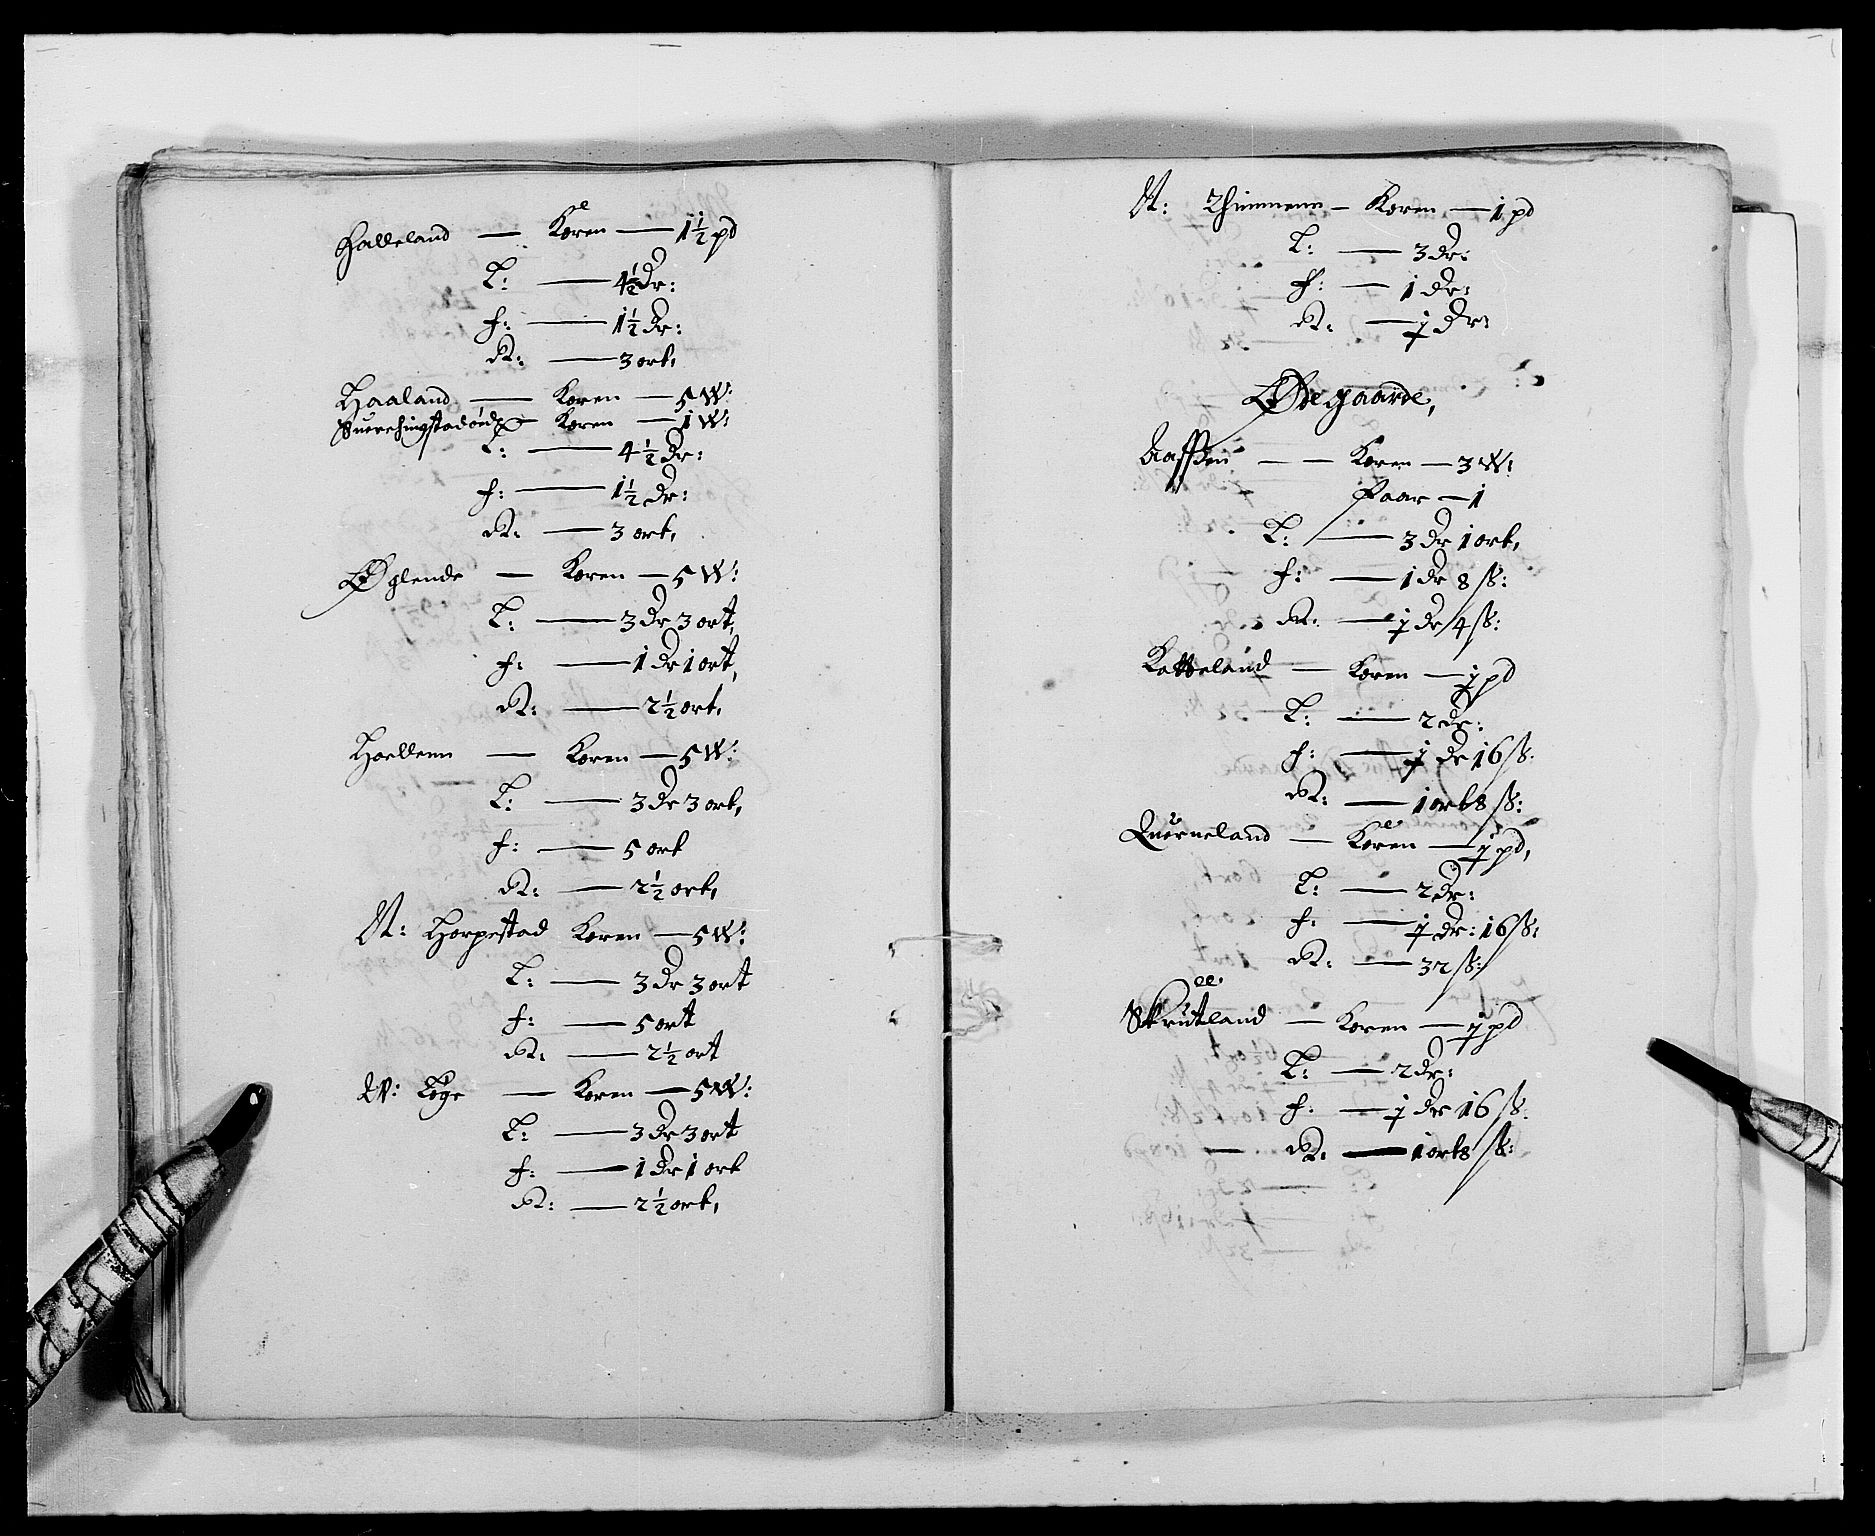 Halleland — Koren — 1½ pd
L: — 4½ Dr:
f: — 1½ Dr:
R: — 3 ort,
Haaland — Koren — 5 W:
Koren — 1 W:
L: — 4½ Dr:
f: — 1½ Dr:
R: — 3 ort,
Øglende — Koren — 5 W:
L: — 3 Dr 3 ort,
f: — 1 Dr 1 ort,
R: — 2½ ort,
Hoelleun — Koren — 5 W:
L: — 3 Dr 3 ort,
f: — 5 ort
R: — 2½ ort,
N: Horpestad Koren — 5 W:
L: — 3 Dr 3 ort
f: — 5 ort
R: — 2½ ort
W: Løge — Koren — 5 W:
L: — 3 Dr 3 ort
f: — 1 Dr 1 ort
R: — 2½ ort,
N: Thimmenn — Koren — 1 pd
L: — 3 Dr:
f: — 1 Dr:
R: — ½ Dr:
Ødegaarde,
— — Koren — 3 W:
Faar — 1
L: — 3 Dr 1 ort,
f: — 1 Dr 8 ß:
R: — ½ Dr 4 ß:
Kotteland — Koren — ½ pd
L: — 2 Dr:
f: — ½ Dr 16 ß:
R: — 1 ort 8 ß:
Querneland — Koren — ½ pd,
L: — 2 Dr:
f: — ½ Dr: 16 ß:
R: — 32 ß:
Skrutland — Koren — ½ pd
L: — 2 Dr:
f: — ½ Dr 16 ß:
— R: — 1 ort 8 ß: